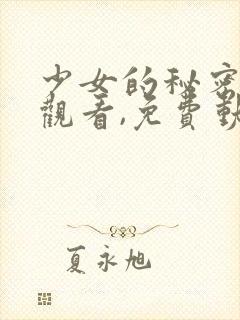 少女的秘密
觀看,免費觀
夏永旭